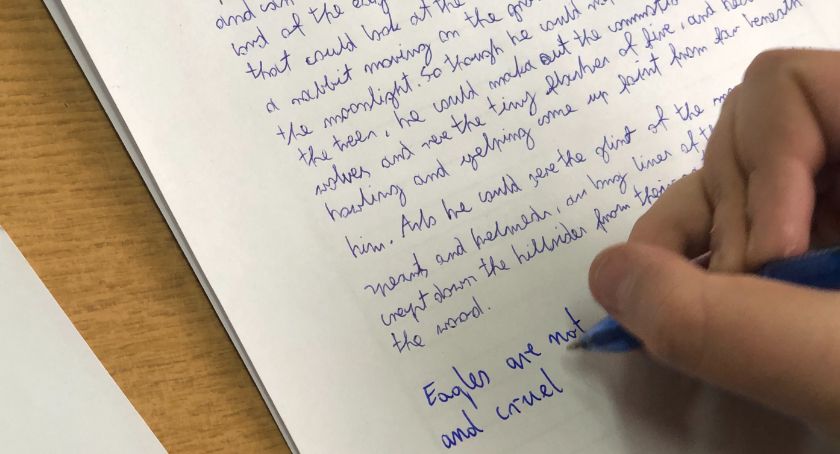 lord of the
that could look at the
a rabbit moving on the
the moonlight. So though he could
the trees, he could make out the
wolves and see the tiny flashes of fire, and
howling and yelping come up faint from far beneath
him. Also he could see the glint of the
spears and helmets, as long lines of
crept down the hillsides from their
the wood.
Eagles are not
and cruel